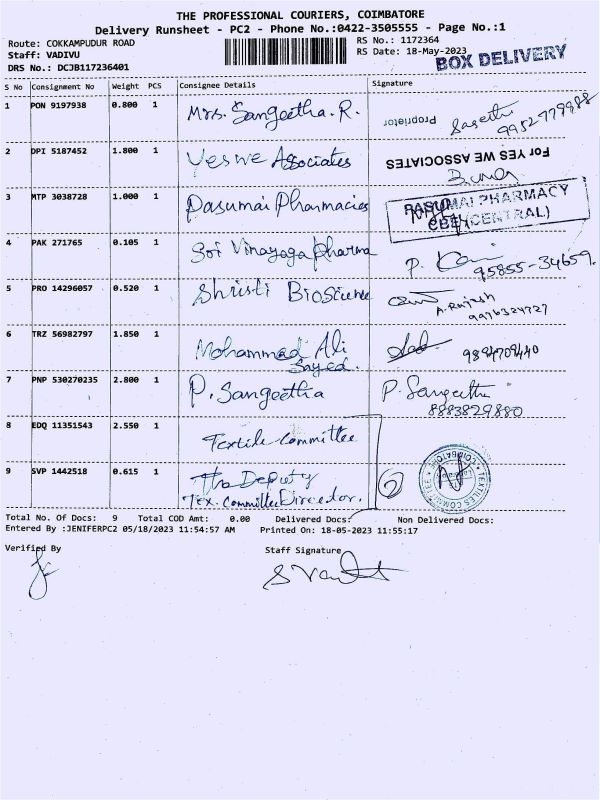 THE PROFESSIONAL COURIERS, COIMBATORE
Delivery Runsheet - PC2 - Phone No.:0422-3505555 - Page No.:1
Route: COKKAMPUDUR ROAD
RS No.: 1172364
Staff: VADIVU
RS Date: 18-May-2023
BOX DELIVERY
DRS No.: DCJB117236401
S No Consignment No Weight PCS Consignee Details Signature
1 PON 9197938 0.800 1 Mrs. Sangeetha. R.
Proprietor
2 DPI 5187452 1.800 1 Yes we Associates
For YES WE ASSOCIATES
3 MTP 3038728 1.000 1 Pasumai Pharmacies
PASUMAI PHARMACY
CBE (CENTRAL)
4 PAK 271765 0.105 1 Sri Vinayaga pharma
95855-34659.
5 PRO 14296057 0.520 1 Shristi Bioscience
A. Rajesh
6 TRZ 56982797 1.850 1 Mohammed Ali
Sayed.
7 PNP 530270235 2.800 1 P. Sangeetha P. Sangeetha
8883829880
8 EDQ 11351543 2.550 1 Textile Committee
9 SVP 1442518 0.615 1 The Deputy
Tex. Committee Director.
2
TEXTILES COMMITTEE
COIMBATORE
Total No. Of Docs: 9 Total COD Amt: 0.00 Delivered Docs: Non Delivered Docs:
Entered By :JENIFERPC2 05/18/2023 11:54:57 AM Printed On: 18-05-2023 11:55:17
Verified By Staff Signature